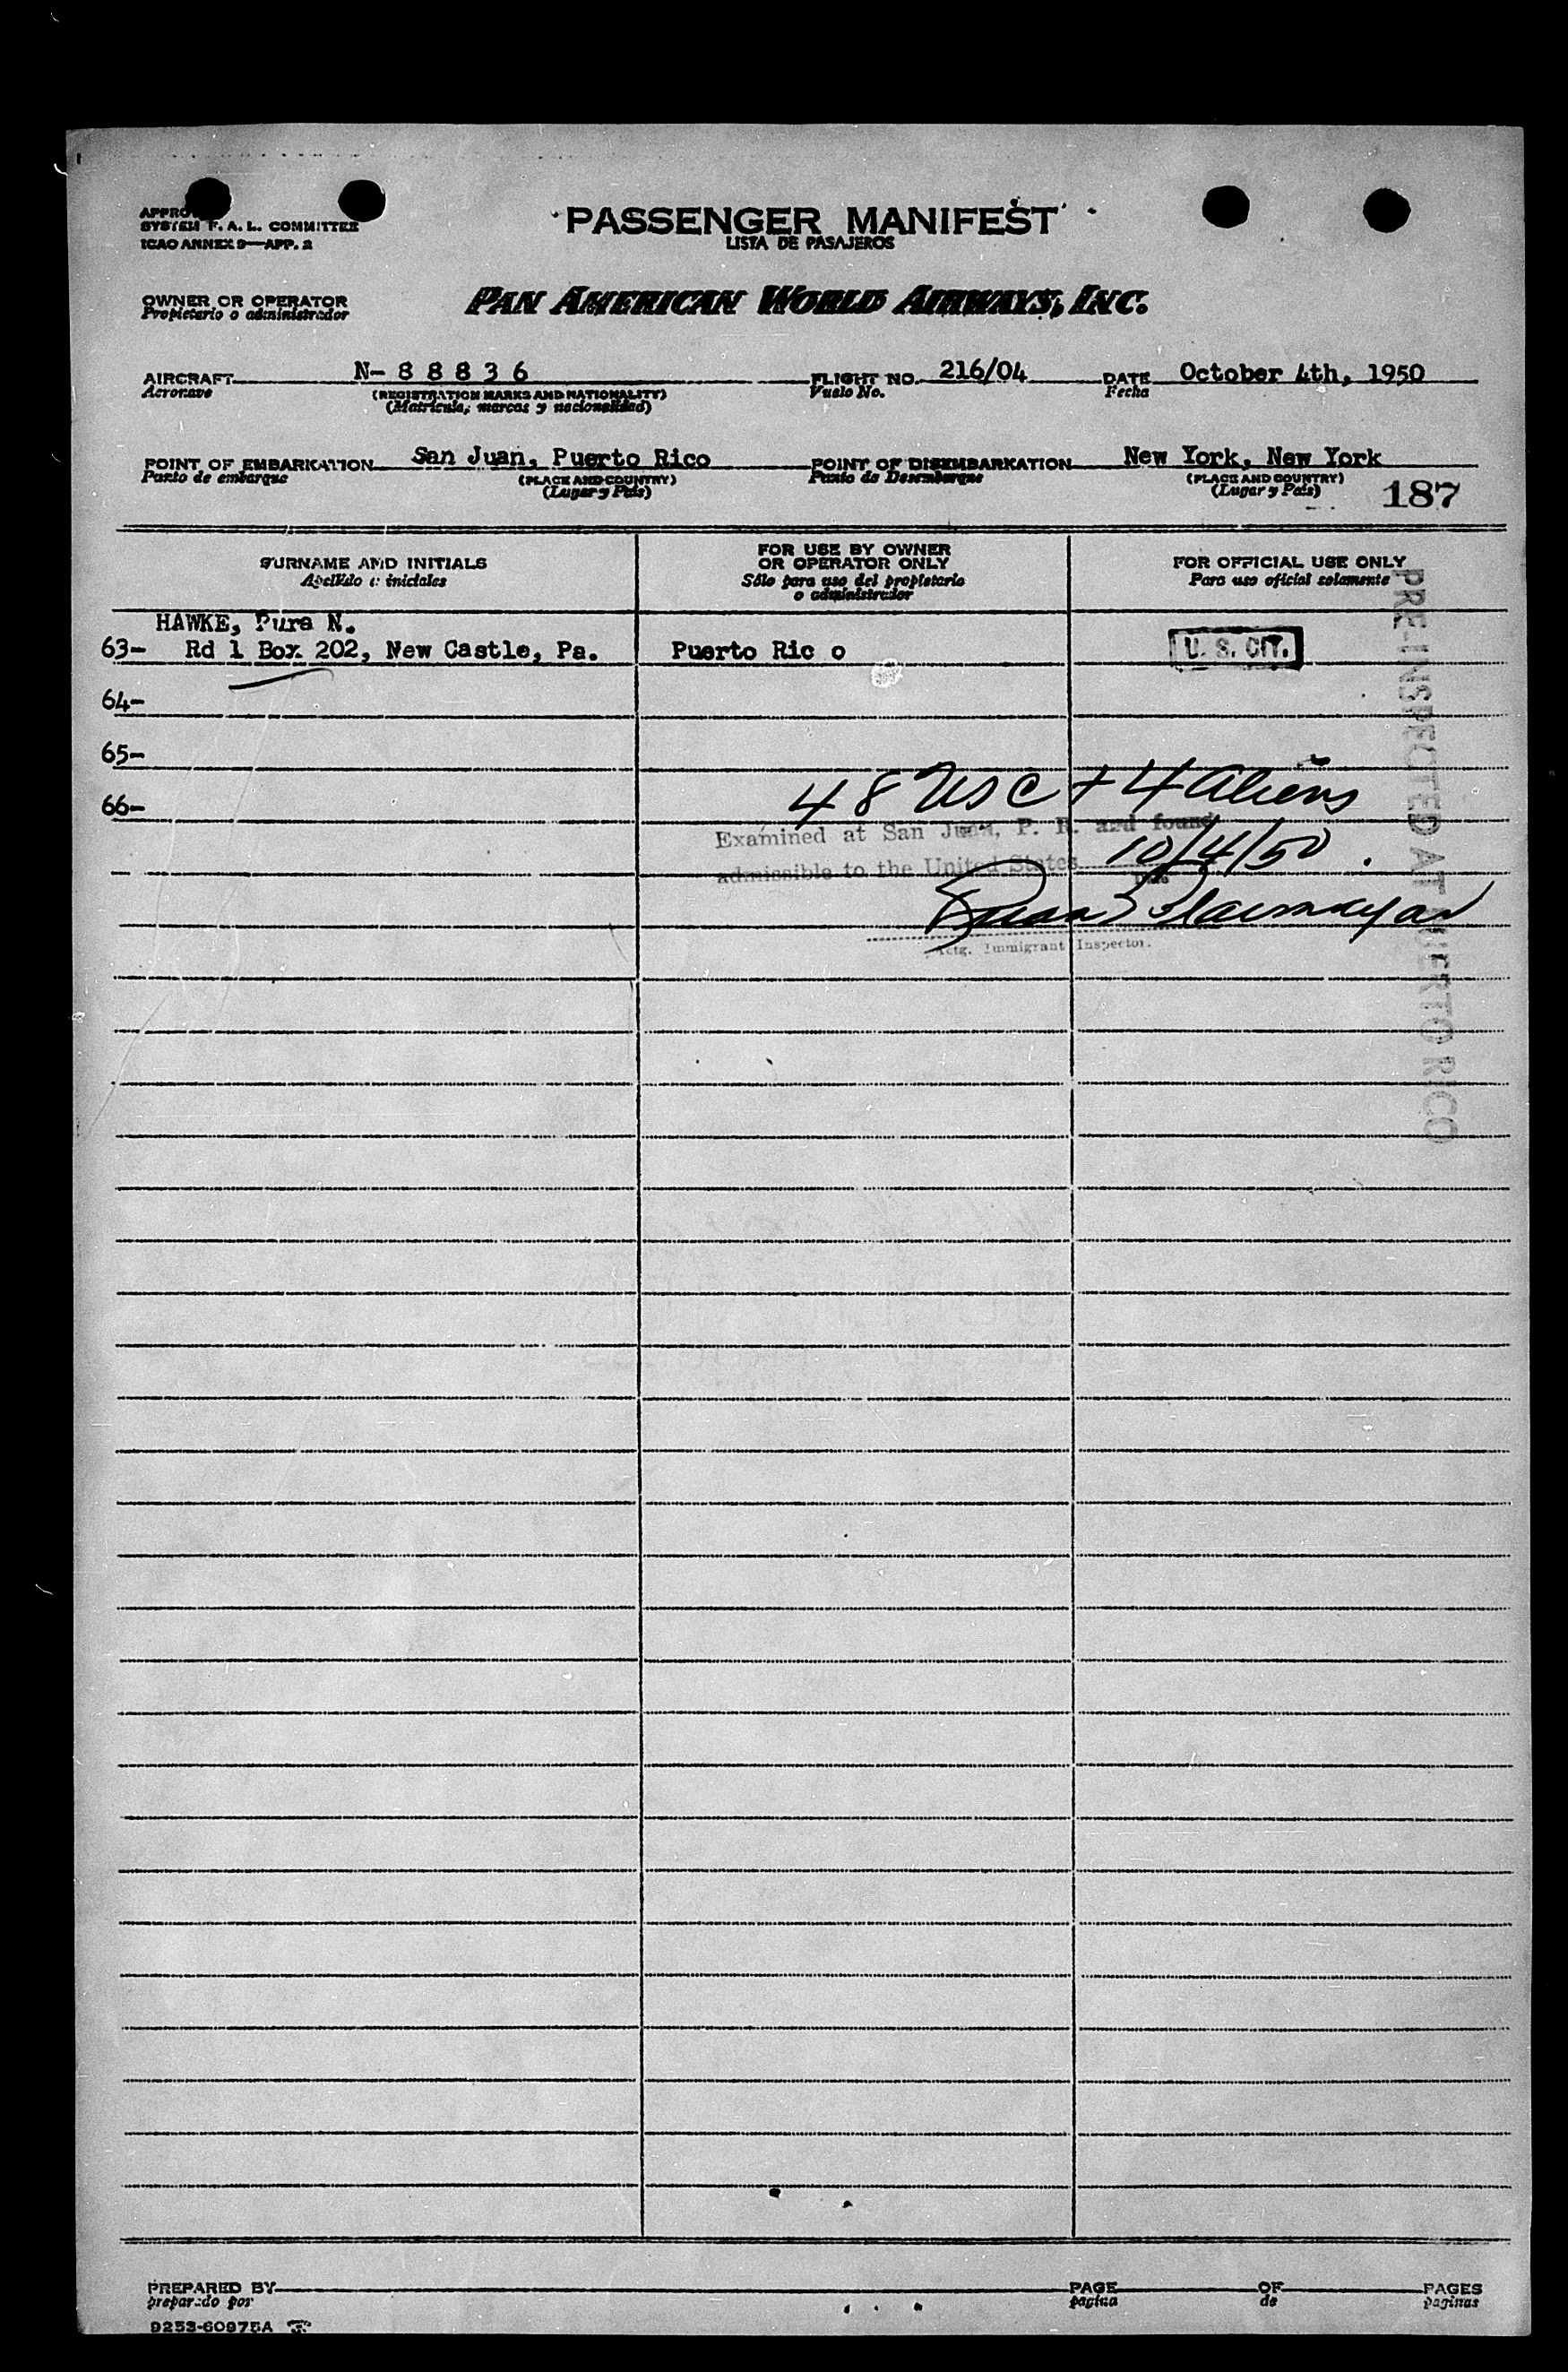 PASSENGER MANIFEST
LISTA DE PASAJEROS
SYSTEM F. A. L. COMMITTEE
ICAO ANNEX 9—APP. 2
OWNER OR OPERATOR
Propietario o administrador
PAN AMERICAN WORLD AIRWAYS, INC.
AIRCRAFT N- 8 8 8 3 6 FLIGHT NO. 216/04 DATE October 4th, 1950
Aeronave (REGISTRATION MARKS AND NATIONALITY) Vuelo No. Fecha
(Matrícula, marcas y nacionalidad)
POINT OF EMBARKATION San Juan, Puerto Rico POINT OF DISEMBARKATION New York, New York
Punto de embarque (PLACE AND COUNTRY) Punto de Desembarque (PLACE AND COUNTRY)
(Lugar y País) (Lugar y País)
187
SURNAME AND INITIALS
Apellido e iniciales
FOR USE BY OWNER
OR OPERATOR ONLY
Sólo para uso del propietario
o administrador
FOR OFFICIAL USE ONLY
Para uso oficial solamente
HAWKE, Pura N.
63- Rd 1 Box 202, New Castle, Pa. Puerto Ric o U. S. CIT.
64-
65-
66-
48 USC + 4 aliens
Examined at San Juan, P. R. and found
admissible to the United States 10/4/50
Date
Actg. Immigrant Inspector.
PRE-INSPECTED AT PUERTO RICO
PREPARED BY PAGE OF PAGES
preparado por página de páginas
9253-60975A